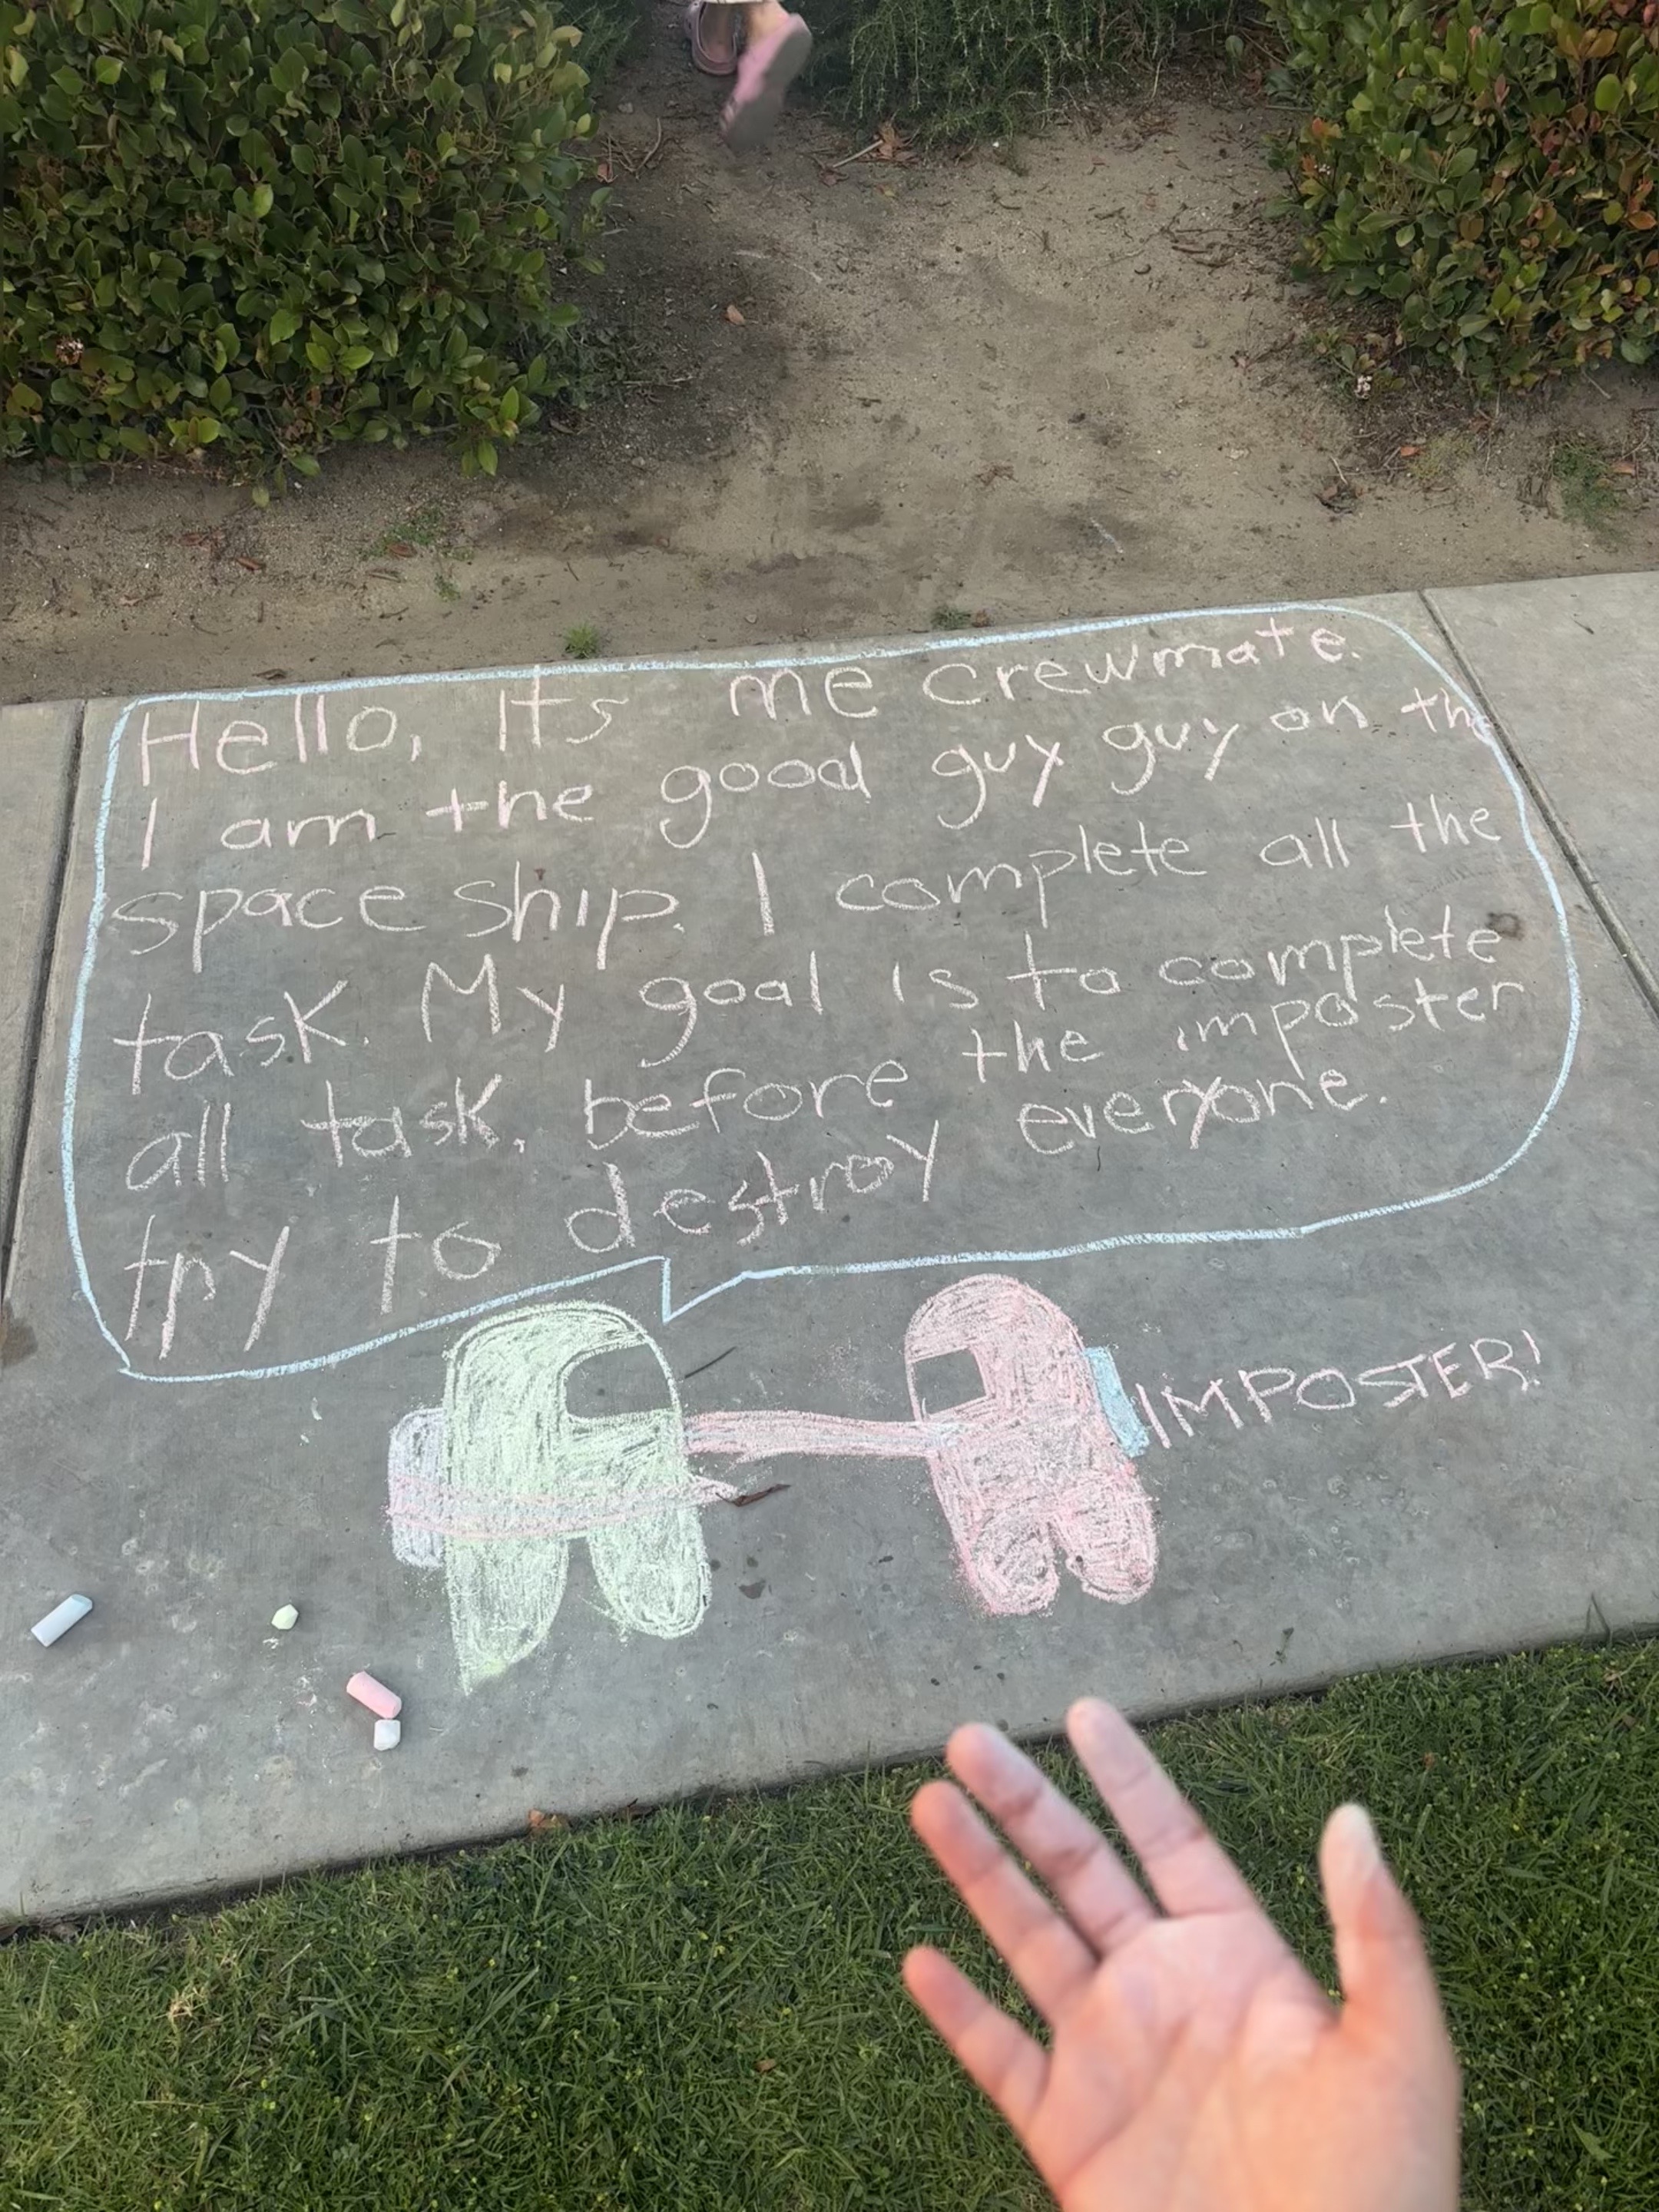 Hello, Its me crewmate.
I am the good guy guy on the
space ship. I complete all the
task. My goal is to complete
all task, before the imposter
try to destroy everyone.
IMPOSTER!